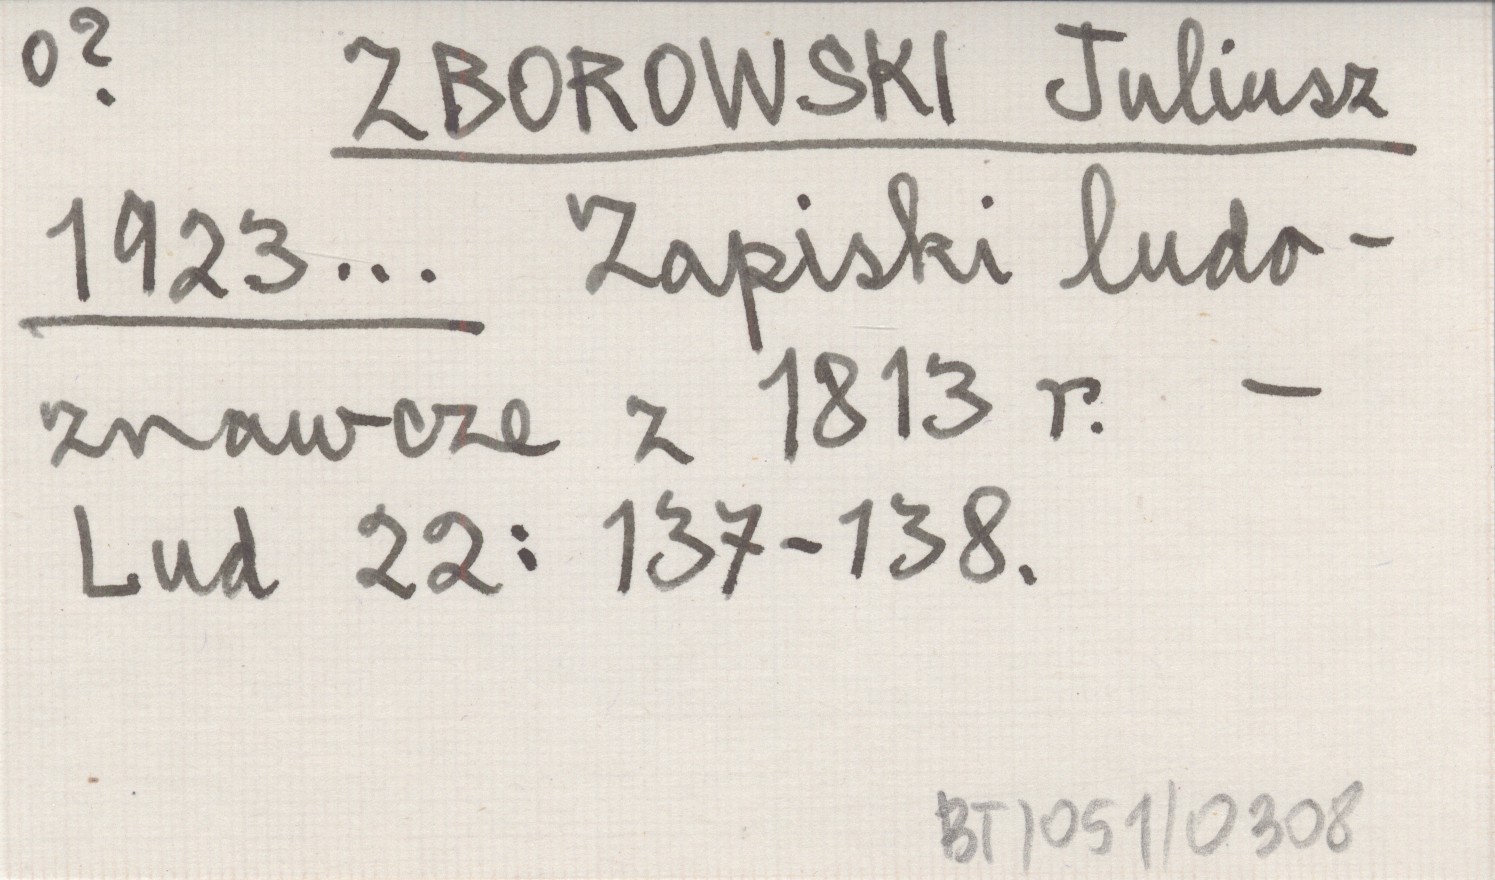 o? ZBOROWSKI Juliusz
1923... Zapiski ludo-
znawcze z 1813 r. -
Lud 22: 137-138.
BT/051/0308